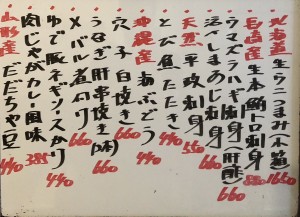 北海道生ウニつまみ木箱 1650
長崎産生本鮪トロ刺身 880
ウマズラハギ刺身(肝醤) 660
活〆しまあじ刺身
天然平政刺身 550
とび魚たたき 440
沖縄産海ぶどう 440
穴子白焼き 660
うなぎ肝串焼き 660
メバル煮付け 660
ゆで豚ネギソースかけ 440
肉じゃがカレー風味 385
山形産だだちゃ豆 440